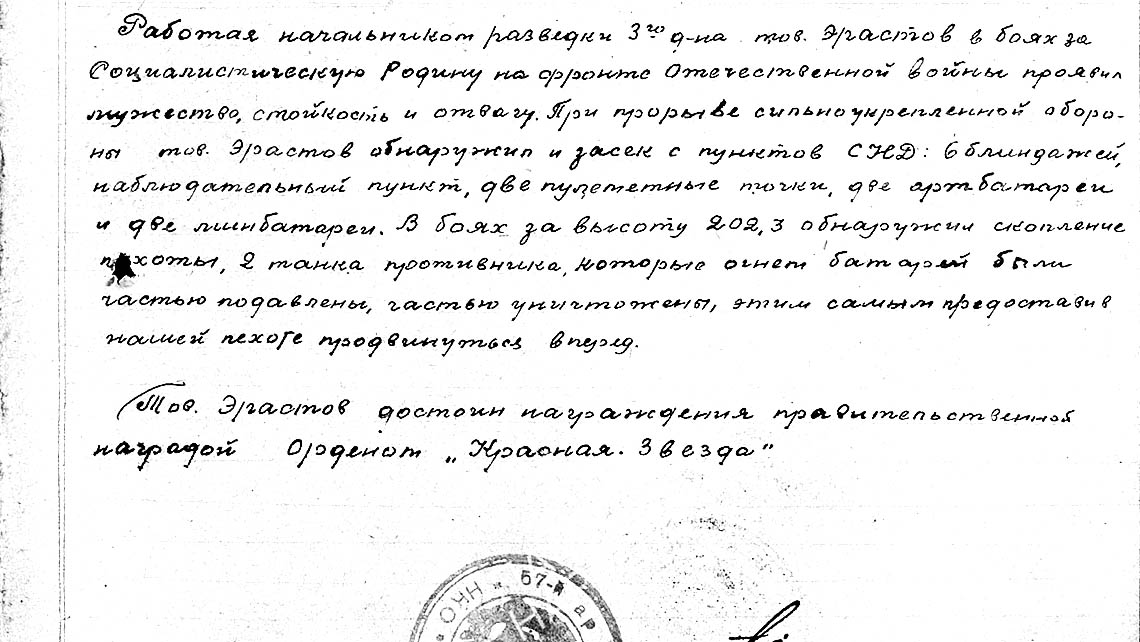 Работая начальником разведки 3го д-на тов. Эрастов в боях за
Социалистическую Родину на фронте Отечественной войны проявил
мужество, стойкость и отвагу. При прорыве сильноукрепленной оборо-
ны тов. Эрастов обнаружил и засек с пунктов СНД: 6 блиндажей,
наблюдательный пункт, две пулеметные точки, две артбатареи
и две минбатареи. В боях за высоту 202,3 обнаружил скопление
пехоты, 2 танка противника, которые огнем батарей были
частью подавлены, частью уничтожены, этим самым предоставив
нашей пехоте продвинуться вперед.
Тов. Эрастов достоин награждения правительственной
наградой Орденом „Красная. Звезда"
НКО * 57-й ар